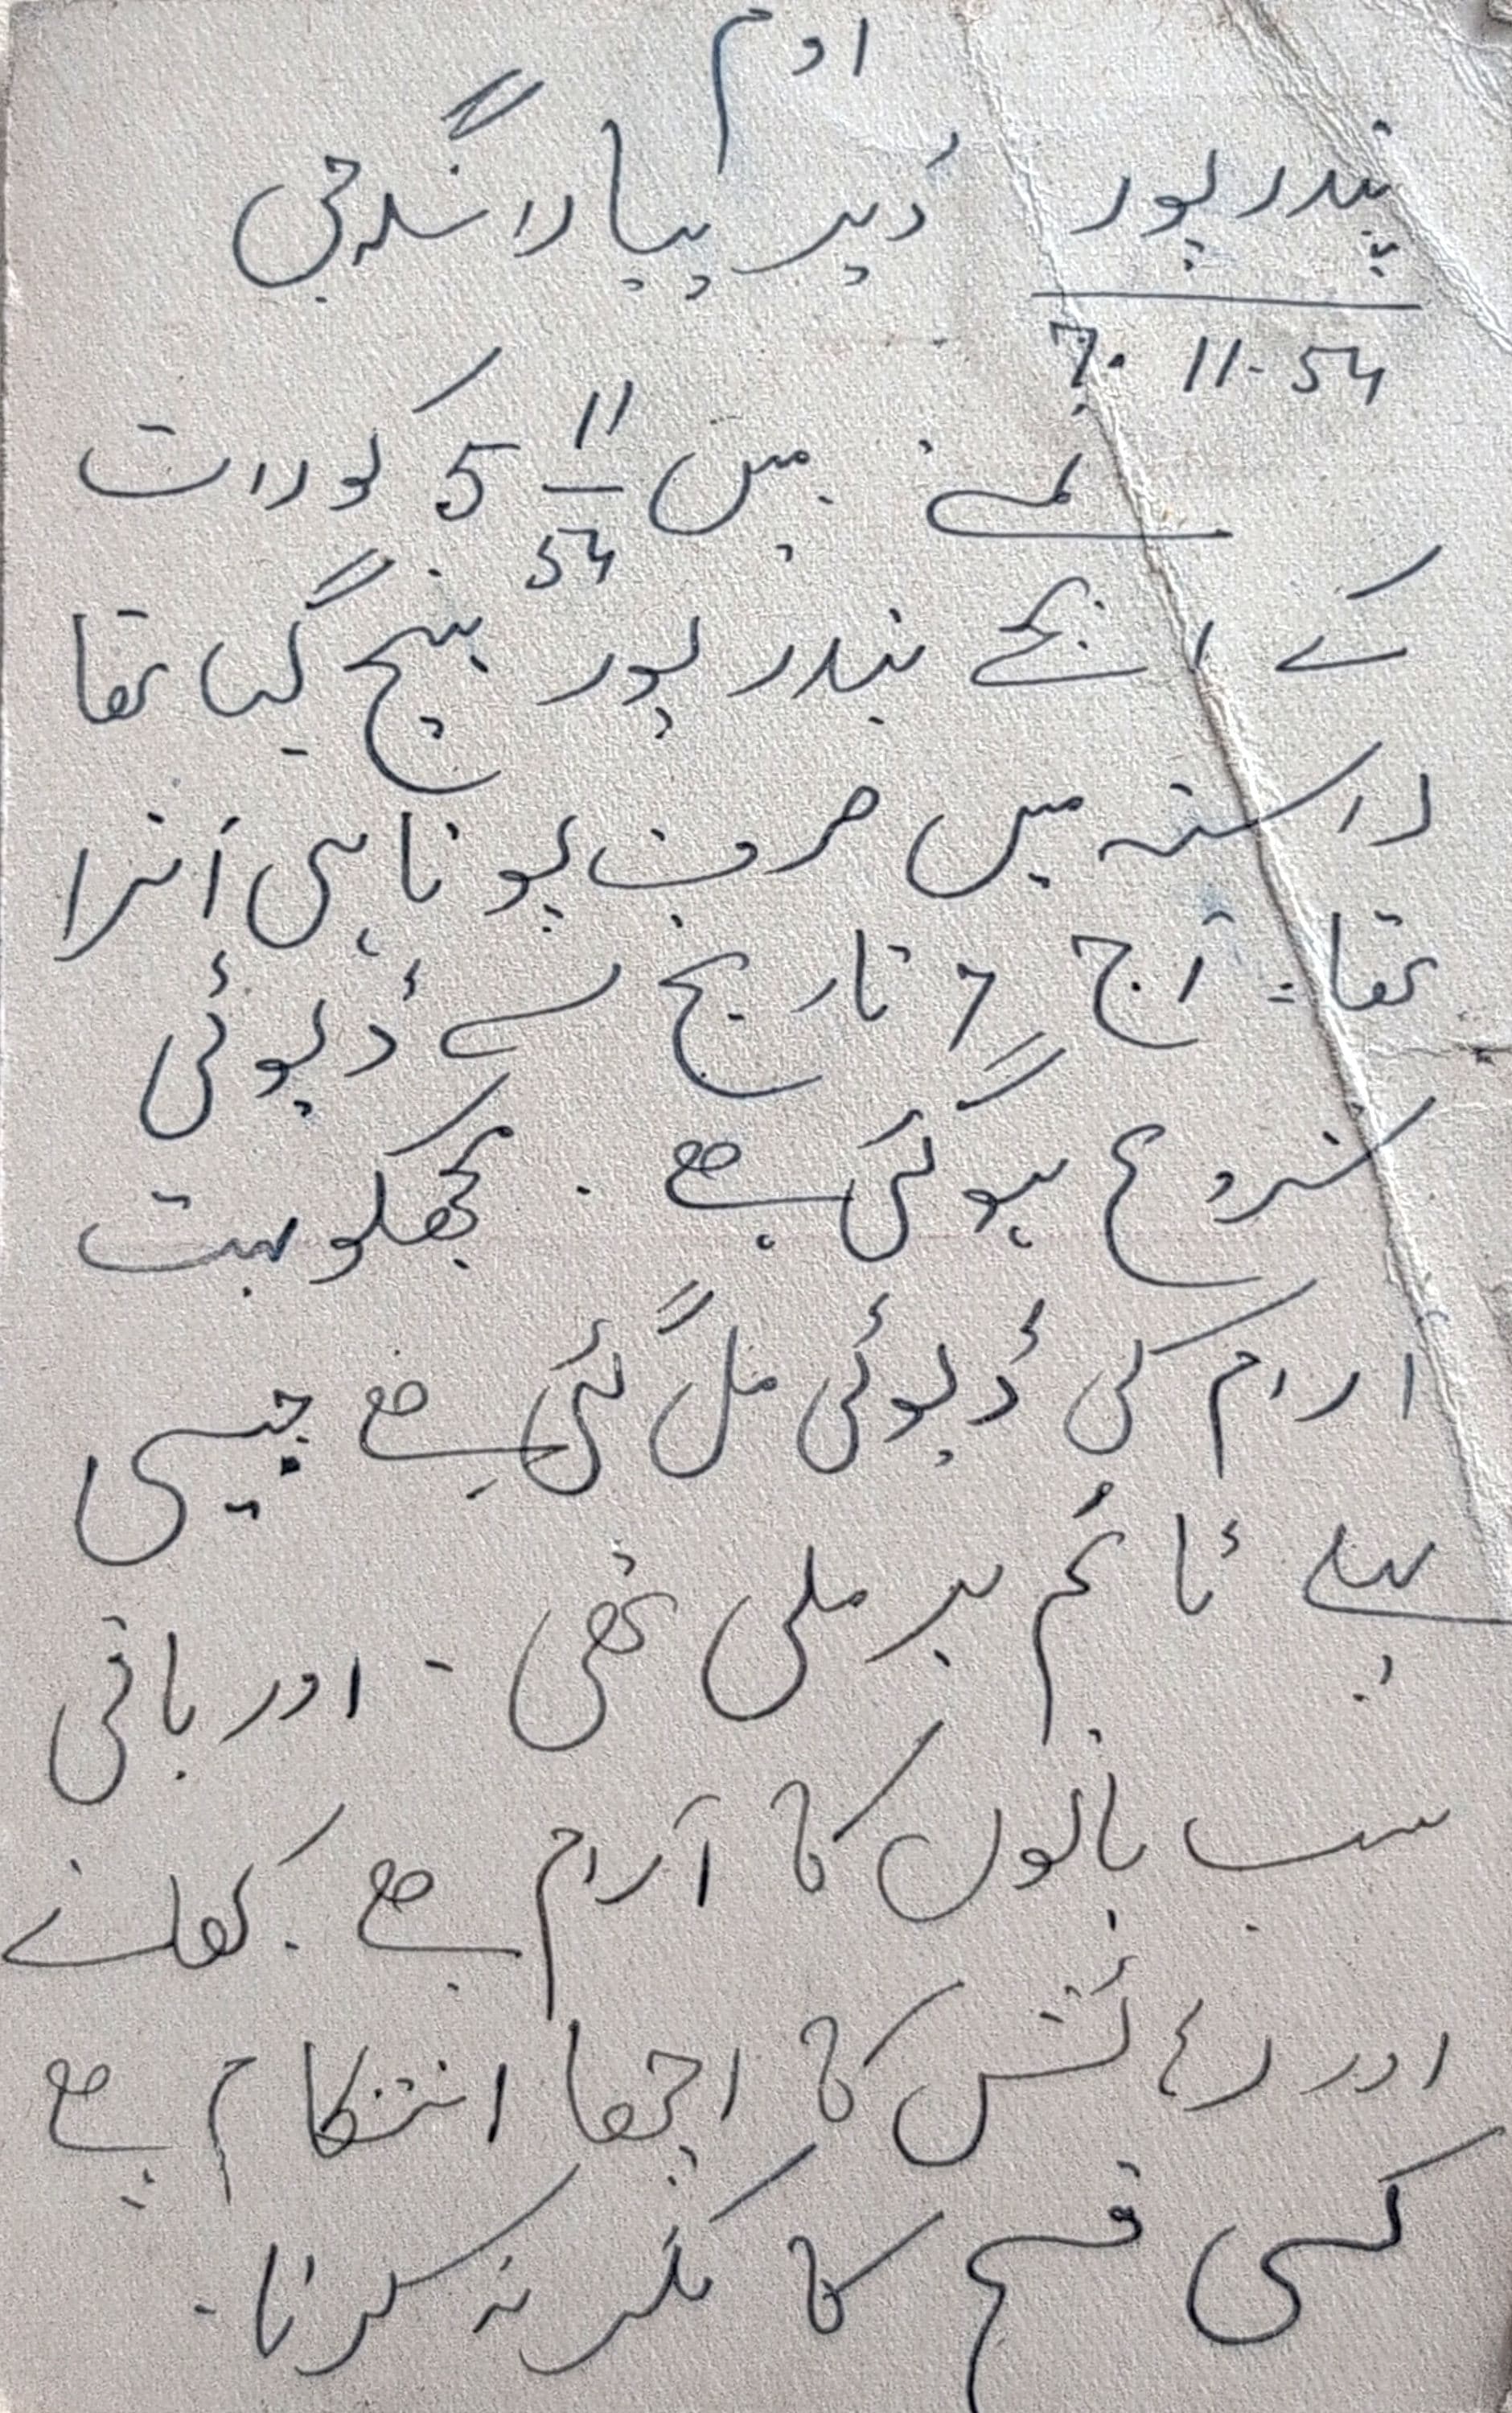 اوم
پندرپور ڈیر پیارا سنگہ جی
7.11-54
نمستے میں 5 11/54 کو رات
کے 1 بجے پندرپور پہنچ گیا تھا
راستہ میں صرف پونا ہی اُترا
تھا۔ آج 7 تاریخ سے ڈیوئی
شروع ہوگئی ہے ۔ مجھکو بہت
ارام کی ڈیوئی مل گئی ہے جیسی
پہلے ٹائم پر ملی تھی ۔ اور باقی
سب باتوں کا آرام ہے ۔ کھانے
اور رہائش کا اچھا انتکام ہے
کسی قسم کا فکر نہ کرنا ۔